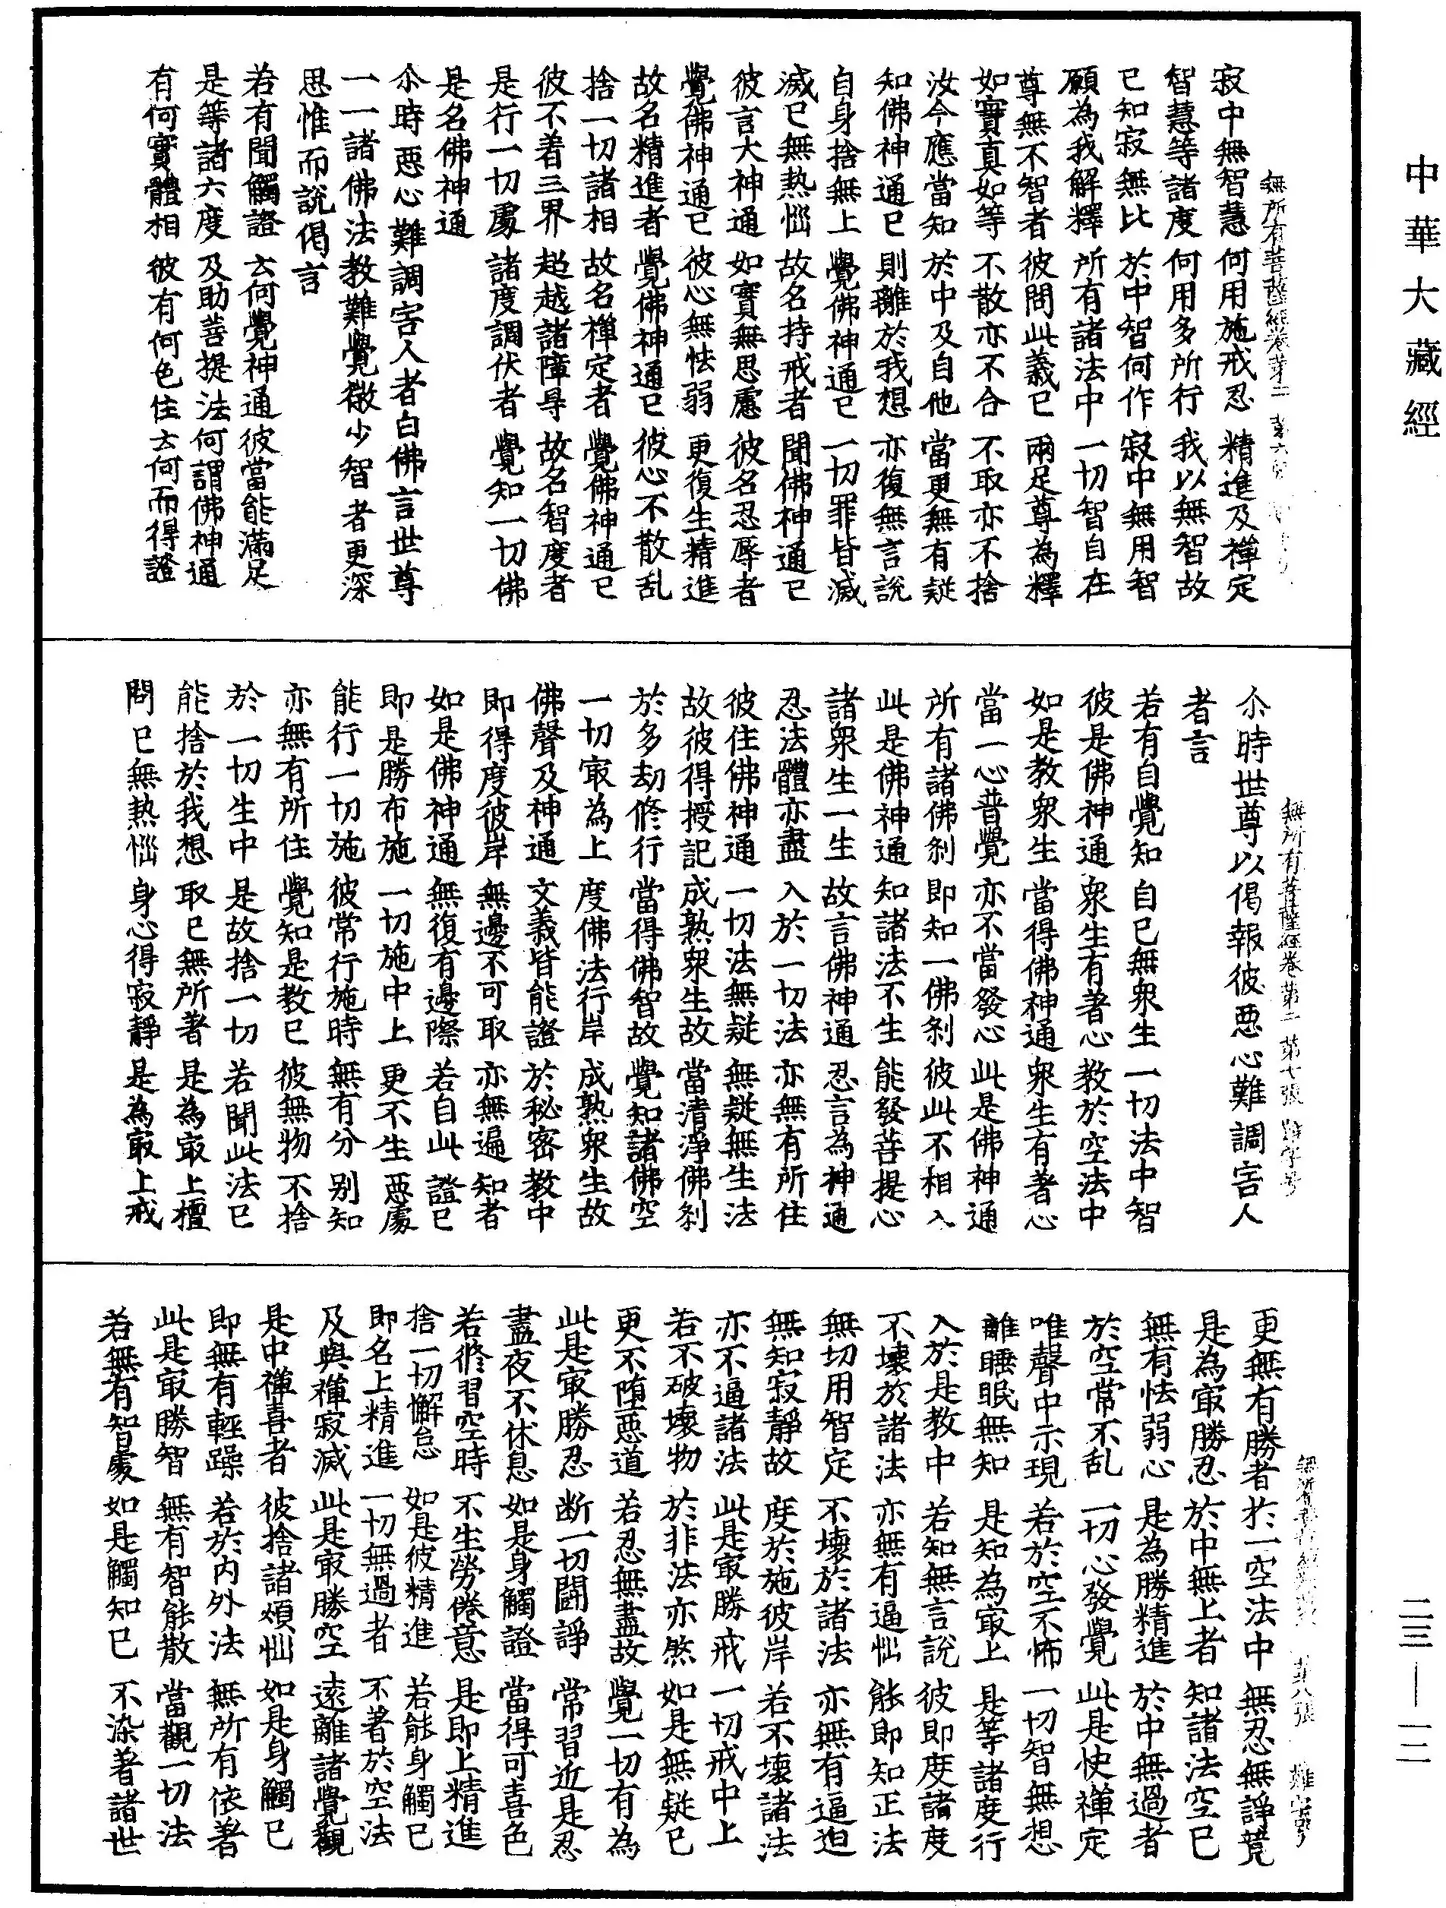 中華大藏經
寂中無智慧 何用施戒忍 精進及禪定
智慧等諸度 何用多所行 我以無智故
已知寂無比 於中智何作 寂中無用智
願為我解釋 所有諸法中 一切智自在
尊無不智者 彼問此義已 兩足尊為釋
如實真如等 不散亦不合 不取亦不捨
汝今應當知 於中及自他 當更無有疑
知佛神通已 則離於我想 亦復無言說
自身捨無上 覺佛神通已 一切罪皆滅
滅已無熱惱 故名持戒者 聞佛神通已
彼言大神通 如實無思慮 彼名忍辱者
覺佛神通已 彼心無怯弱 更復生精進
故名精進者 覺佛神通已 彼心不散乱
捨一切諸相 故名禪定者 覺佛神通已
彼不著三界 超越諸障㝵 故名智度者
是行一切處 諸度調伏者 覺知一切佛
是名佛神通
尒時惡心難調害人者白佛言世尊
一一諸佛法教難覺微少智者更深
思惟而說偈言
若有聞觸證 云何覺神通 彼當能滿足
是等諸六度 及助菩提法 何謂佛神通
有何實體相 彼有何色住 云何而得證
無所有菩薩經卷第二 第六張
尒時世尊以偈報彼惡心難調害人
者言
若有自覺知 自已無衆生 一切法中智
彼是佛神通 衆生有著心 教於空法中
如是教衆生 當得佛神通 衆生有著心
當一心普覺 亦不當發心 此是佛神通
所有諸佛剎 即知一佛剎 彼此不相入
此是佛神通 知諸法不生 能發菩提心
諸衆生一生 故言佛神通 忍言為神通
忍法體亦盡 入於一切法 亦無有所住
彼住佛神通 一切法無疑 無疑無生法
故彼得授記 成熟衆生故 當清淨佛剎
於多劫修行 當得佛智故 覺知諸佛空
一切㝡為上 度佛法行岸 成熟衆生故
佛聲及神通 文義皆能證 於秘密教中
即得度彼岸 無邊不可取 亦無遍知者
如是佛神通 無復有邊際 若自此證已
即是勝布施 一切施中上 更不生惡處
能行一切施 彼常行施時 無有分别知
亦無有所住 覺知是教已 彼無物不捨
於一切生中 是故捨一切 若聞此法已
能捨於我想 取已無所著 是為㝡上檀
問已無熱惱 身心得寂靜 是為㝡上戒
無所有菩薩經卷第二 第七張 難字号
更無有勝者 於一空法中 無忍無諍競
是為㝡勝忍 於中無上者 知諸法空已
無有怯弱心 是為勝精進 於中無過者
於空常不乱 一切心發覺 此是使禪定
唯聲中示現 若於空不怖 一切智無想
離睡眠無知 是知為㝡上 是等諸度行
入於是教中 若知無言說 彼即度諸度
不壞於諸法 亦無有逼惱 能即知正法
無切用智定 不壞於諸法 亦無有逼迫
無知寂靜故 度於施彼岸 若不壞諸法
亦不逼諸法 此是㝡勝戒 一切戒中上
若不破壞物 於非法亦然 如是無疑已
更不墮惡道 若忍無盡故 覺一切有為
此是㝡勝忍 断一切闘諍 常習近是忍
盡夜不休息 如是身觸證 當得可喜色
若修習空時 不生勞倦意 是即上精進
捨一切懈怠 如是彼精進 若能身觸已
即名上精進 一切無過者 不著於空法
及與禪寂滅 此是㝡勝空 遠離諸覺觀
是中禪喜者 彼捨諸煩惱 如是身觸已
即無有輕躁 若於内外法 無所有依著
此是㝡勝智 無有智能散 當觀一切法
若無有智處 如是觸知已 不染著諸世
第八張
二三—一二